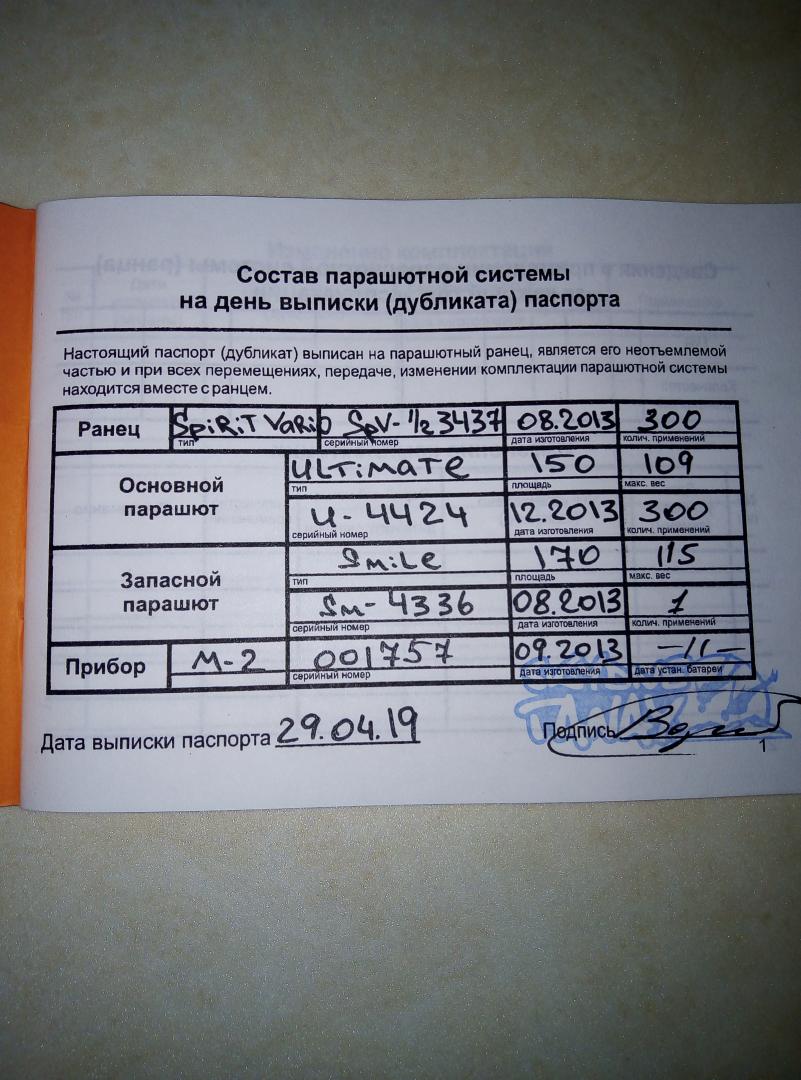 Состав парашютной системы
на день выписки (дубликата) паспорта
Настоящий паспорт (дубликат) выписан на парашютный ранец, является его неотъемлемой
частью и при всех перемещениях, передаче, изменении комплектации парашютной системы
находится вместе с ранцем.
Ранец SpiRiT VaRiO SpV-1/2 3437 08.2013 300
тип серийный номер дата изготовления колич. применений
Основной парашют
ULTimaTe 150 109
тип площадь макс. вес
U-4424 12.2013 300
серийный номер дата изготовления колич. применений
Запасной парашют
SmiLe 170 115
тип площадь макс. вес
Sm-4336 08.2013 1
серийный номер дата изготовления колич. применений
Прибор М-2 001757 09.2013 —//—
серийный номер дата изготовления дата устан. батареи
Дата выписки паспорта 29.04.19 Подпись
1